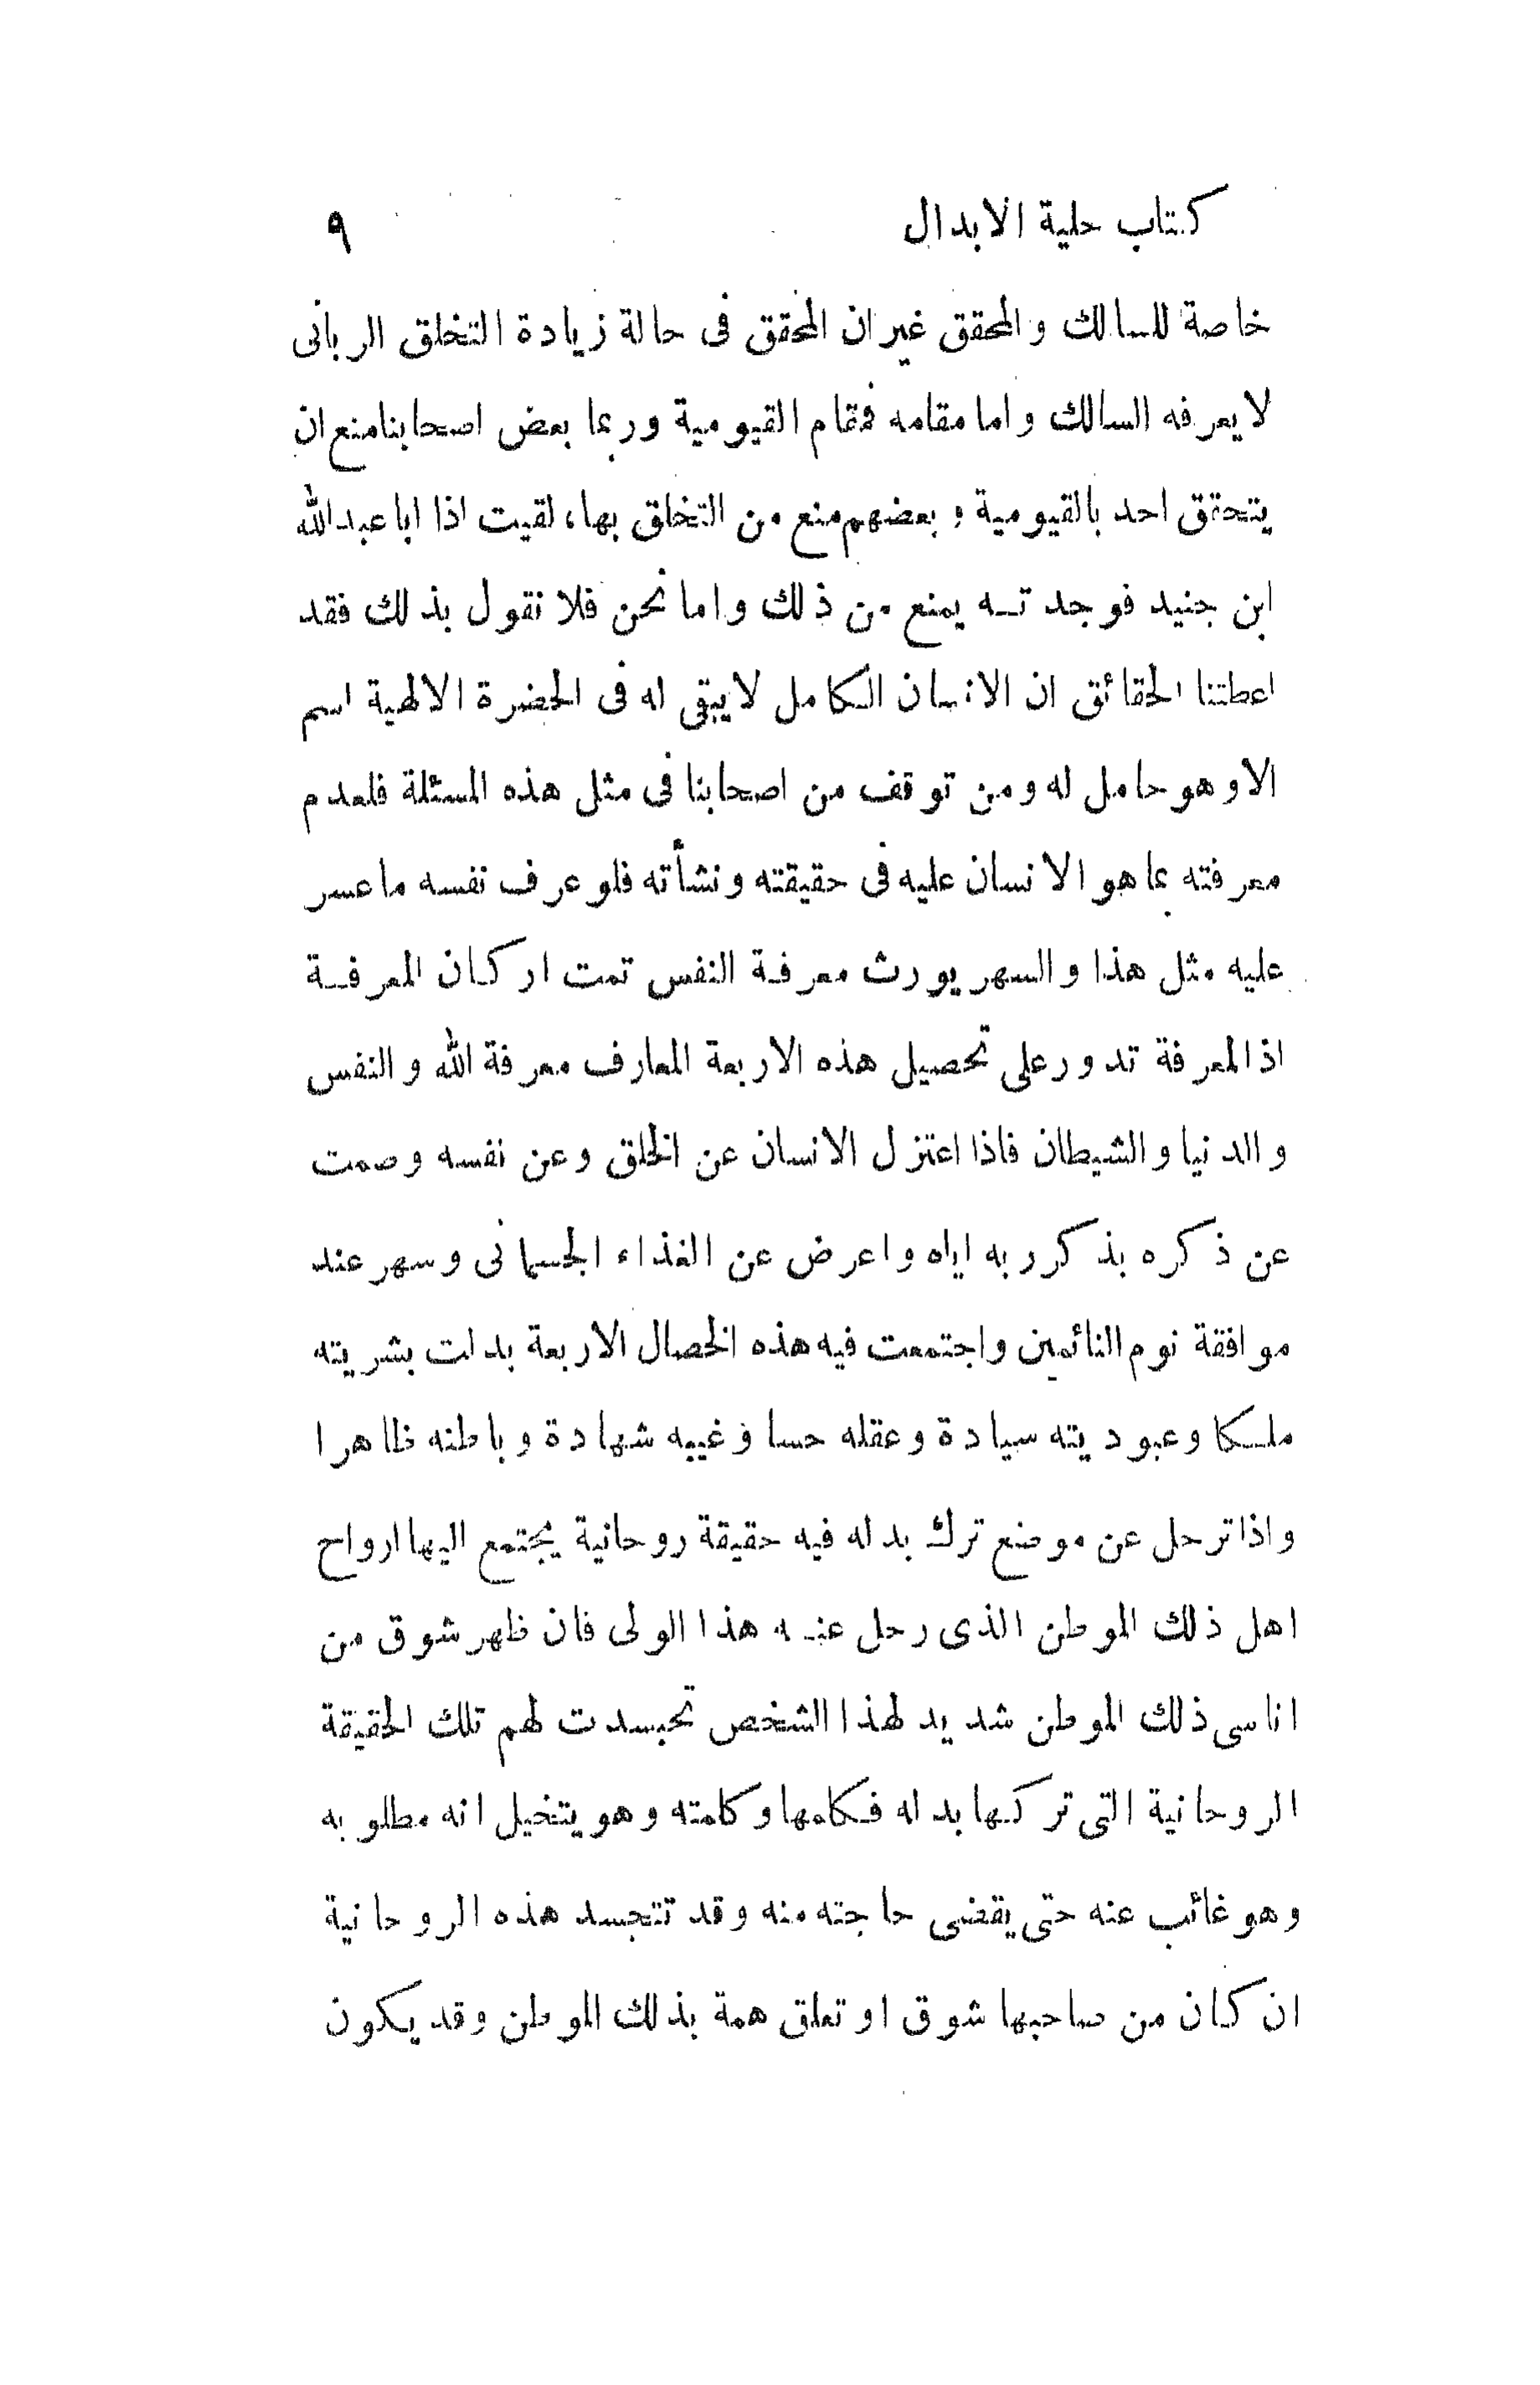 كتاب حلية الابدال ٩
خاصة للسالك والمحقق غير ان المحقق فى حالة زيادة التخلق الربانى
لا يعرفه السالك واما مقامه فمقام القيومية وربما بعض اصحابنا منع ان
يتحقق احد بالقيومية وبعضهم منع من التخلق بها، لقيت اذا ابا عبدالله
ابن جنيد فوجدته يمنع من ذلك واما نحن فلا نقول بذلك فقد
اعطتنا الحقائق ان الانسان الكامل لا يبقى له فى الحضرة الالهية اسم
الا وهو حامل له ومن توقف من اصحابنا فى مثل هذه المسئلة فلعدم
معرفته بما هو الانسان عليه فى حقيقته ونشأته فلو عرف نفسه ما عسر
عليه مثل هذا والسهر يورث معرفة النفس تمت اركان المعرفة
اذ المعرفة تدور على تحصيل هذه الاربعة المعارف معرفة الله والنفس
والدنيا والشيطان فاذا اعتزل الانسان عن الخلق وعن نفسه وصمت
عن ذكره بذكر ربه اياه واعرض عن الغذاء الجسمانى وسهر عند
موافقة نوم النائمين واجتمعت فيه هذه الخصال الاربعة بدلت بشريته
ملكا وعبوديته سيادة وعقله حسا وغيبه شهادة وباطنه ظاهرا
واذا ترحل عن موضع ترك بدله فيه حقيقة روحانية يجتمع اليها ارواح
اهل ذلك الموطن الذى رحل عنه هذا الولى فان ظهر شوق من
اناسى ذلك الموطن شديد لهذا الشخص تجسدت لهم تلك الحقيقة
الروحانية التى تركها بدله فكلمها وكلمته وهو يتخيل انه مطلوبه
وهو غائب عنه حتى يقضى حاجته منه وقد تتجسد هذه الروحانية
ان كان من صاحبها شوق او تعلق همة بذلك الموطن وقد يكون